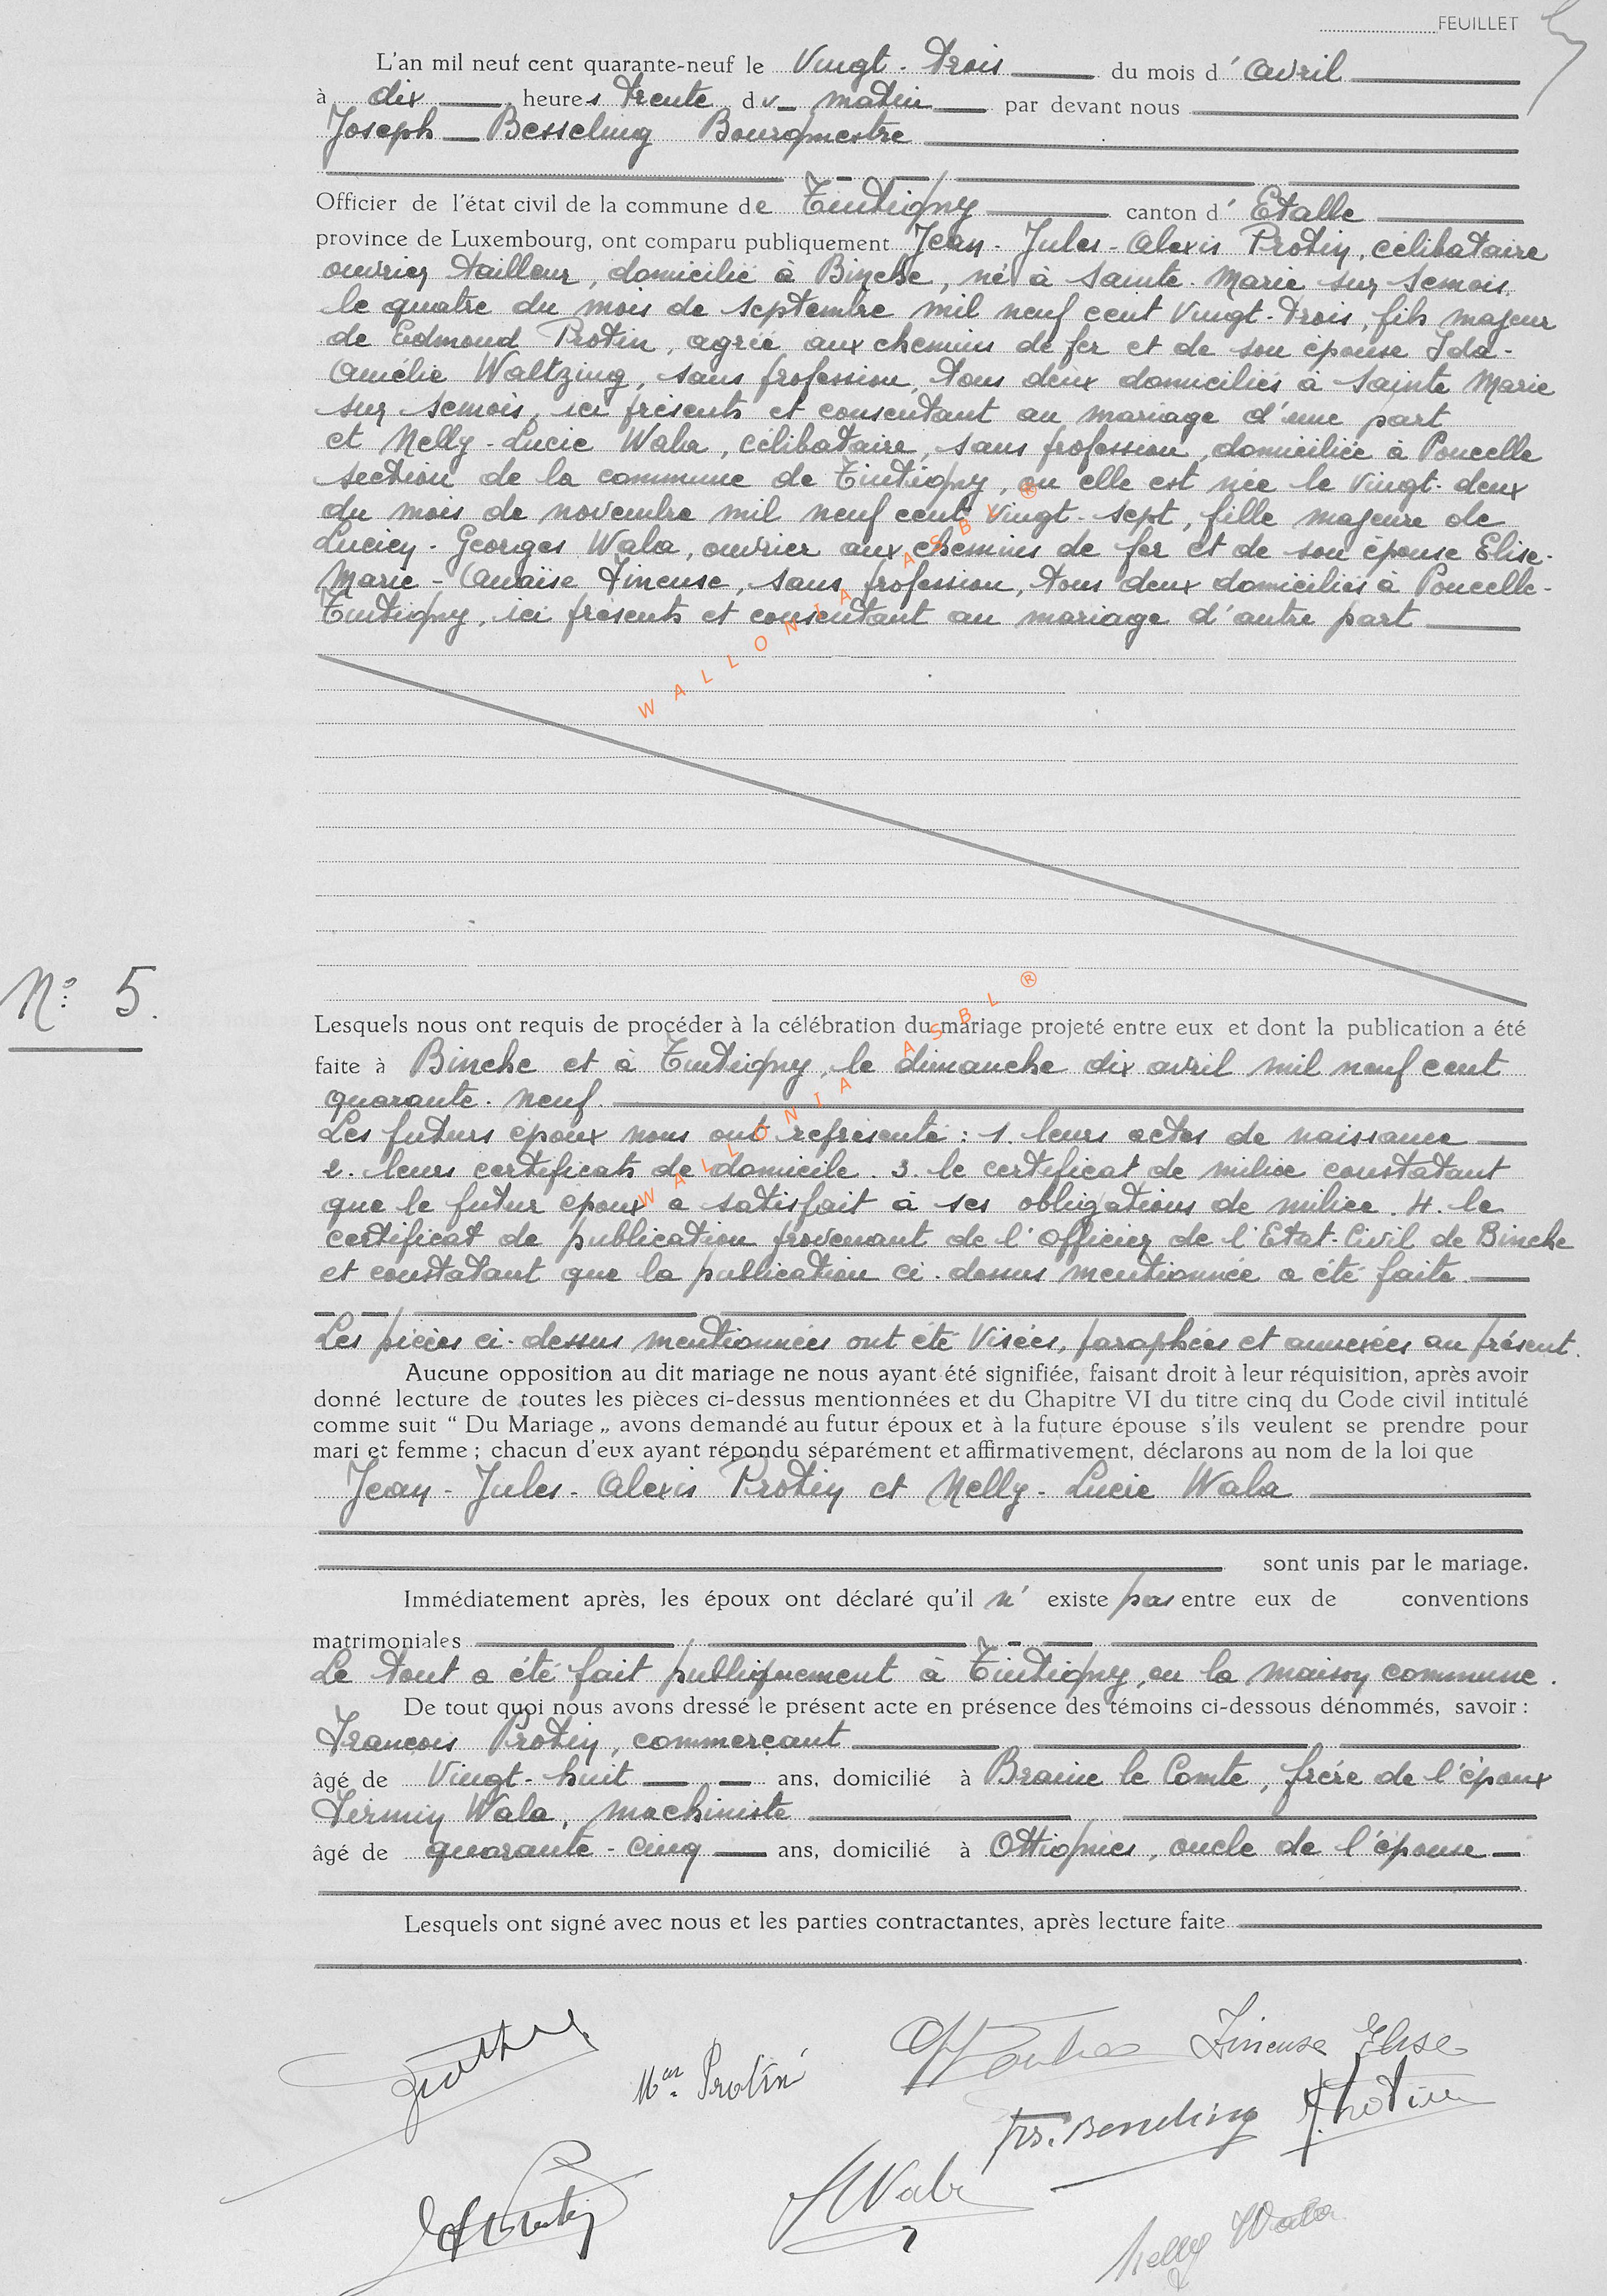 FEUILLET
L'an mil neuf cent quarante-neuf le Vingt-trois du mois d'avril
à dix heures trente du matin par devant nous
Joseph Besseling Bourgmestre
Officier de l'état civil de la commune de Tintigny canton d'Etalle
province de Luxembourg, ont comparu publiquement Jean-Jules-Alexis Protin, célibataire
ouvrier tailleur, domicilié à Binche, né à Sainte-Marie sur Semois,
le quatre du mois de septembre mil neuf cent vingt-trois, fils majeur
de Edmond Protin, agréé aux chemins de fer et de son épouse Ida-
Amélie Waltzing, sans profession, tous deux domiciliés à Sainte Marie
sur Semois, ici présents et consentant au mariage d'une part
et Nelly-Lucie Wala, célibataire, sans profession, domiciliée à Poncelle
section de la commune de Tintigny, ou elle est née le vingt-deux
du mois de novembre mil neuf cent vingt-sept, fille majeure de
Lucien-Georges Wala, ouvrier aux chemins de fer et de son épouse Elise-
Marie-Anaïse Fineuse, sans profession, tous deux domiciliés à Poncelle-
Tintigny, ici présents et consentant au mariage d'autre part
WALLONIA ASBL ®
N° 5.
Lesquels nous ont requis de procéder à la célébration du mariage projeté entre eux et dont la publication a été
faite à Binche et à Tintigny, le dimanche dix avril mil neuf cent
quarante-neuf.
Les futurs époux nous ont représenté : 1. leurs actes de naissance
2. leurs certificats de domicile. 3. le certificat de milice constatant
que le futur époux a satisfait à ses obligations de milice. 4. le
certificat de publication provenant de l'Officier de l'Etat-Civil de Binche
et constatant que la publication ci-dessus mentionnée a été faite
WALLONIA ASBL ®
Les pièces ci-dessus mentionnées ont été visées, paraphées et annexées au présent.
Aucune opposition au dit mariage ne nous ayant été signifiée, faisant droit à leur réquisition, après avoir
donné lecture de toutes les pièces ci-dessus mentionnées et du Chapitre VI du titre cinq du Code civil intitulé
comme suit “ Du Mariage „ avons demandé au futur époux et à la future épouse s'ils veulent se prendre pour
mari et femme ; chacun d'eux ayant répondu séparément et affirmativement, déclarons au nom de la loi que
Jean-Jules-Alexis Protin et Nelly-Lucie Wala
sont unis par le mariage.
Immédiatement après, les époux ont déclaré qu'il n'existe pas entre eux de conventions
matrimoniales
Le tout a été fait publiquement à Tintigny, en la maison commune.
De tout quoi nous avons dressé le présent acte en présence des témoins ci-dessous dénommés, savoir :
François Protin, commerçant
âgé de Vingt-huit ans, domicilié à Braine le Comte, frère de l'époux
Firmin Wala, machiniste
âgé de quarante-cinq ans, domicilié à Ottignies, oncle de l'épouse
Lesquels ont signé avec nous et les parties contractantes, après lecture faite
Protin Fineuse Elise
Protin
Wala
Nelly Wala